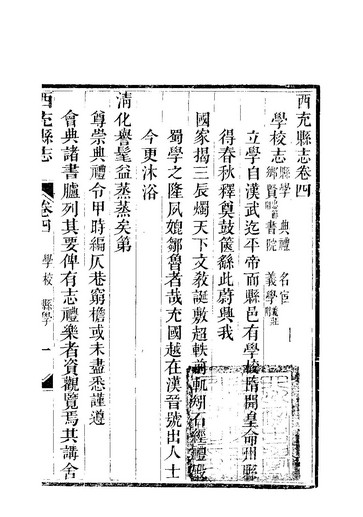 西充縣志卷四
學校志 縣學 典禮 名宦
鄉賢 書院 義學
立學自漢武迄平帝而縣邑有學校隋開皇命州縣
得春秋釋奠鼓篋繇此蔚興我
國家揭三辰燭天下文敎誕敷超軼前
蜀學之隆夙媲鄒魯者哉充國越在漢晉號出人士
今更沐浴
淸化譽髦益蒸蒸矣第
尊崇典禮令甲時編仄巷窮檐或未盡悉謹遵
會典諸書臚列其要俾有志禮樂者資觀覽焉其講舍
西充縣志 卷四 學校 縣學 一